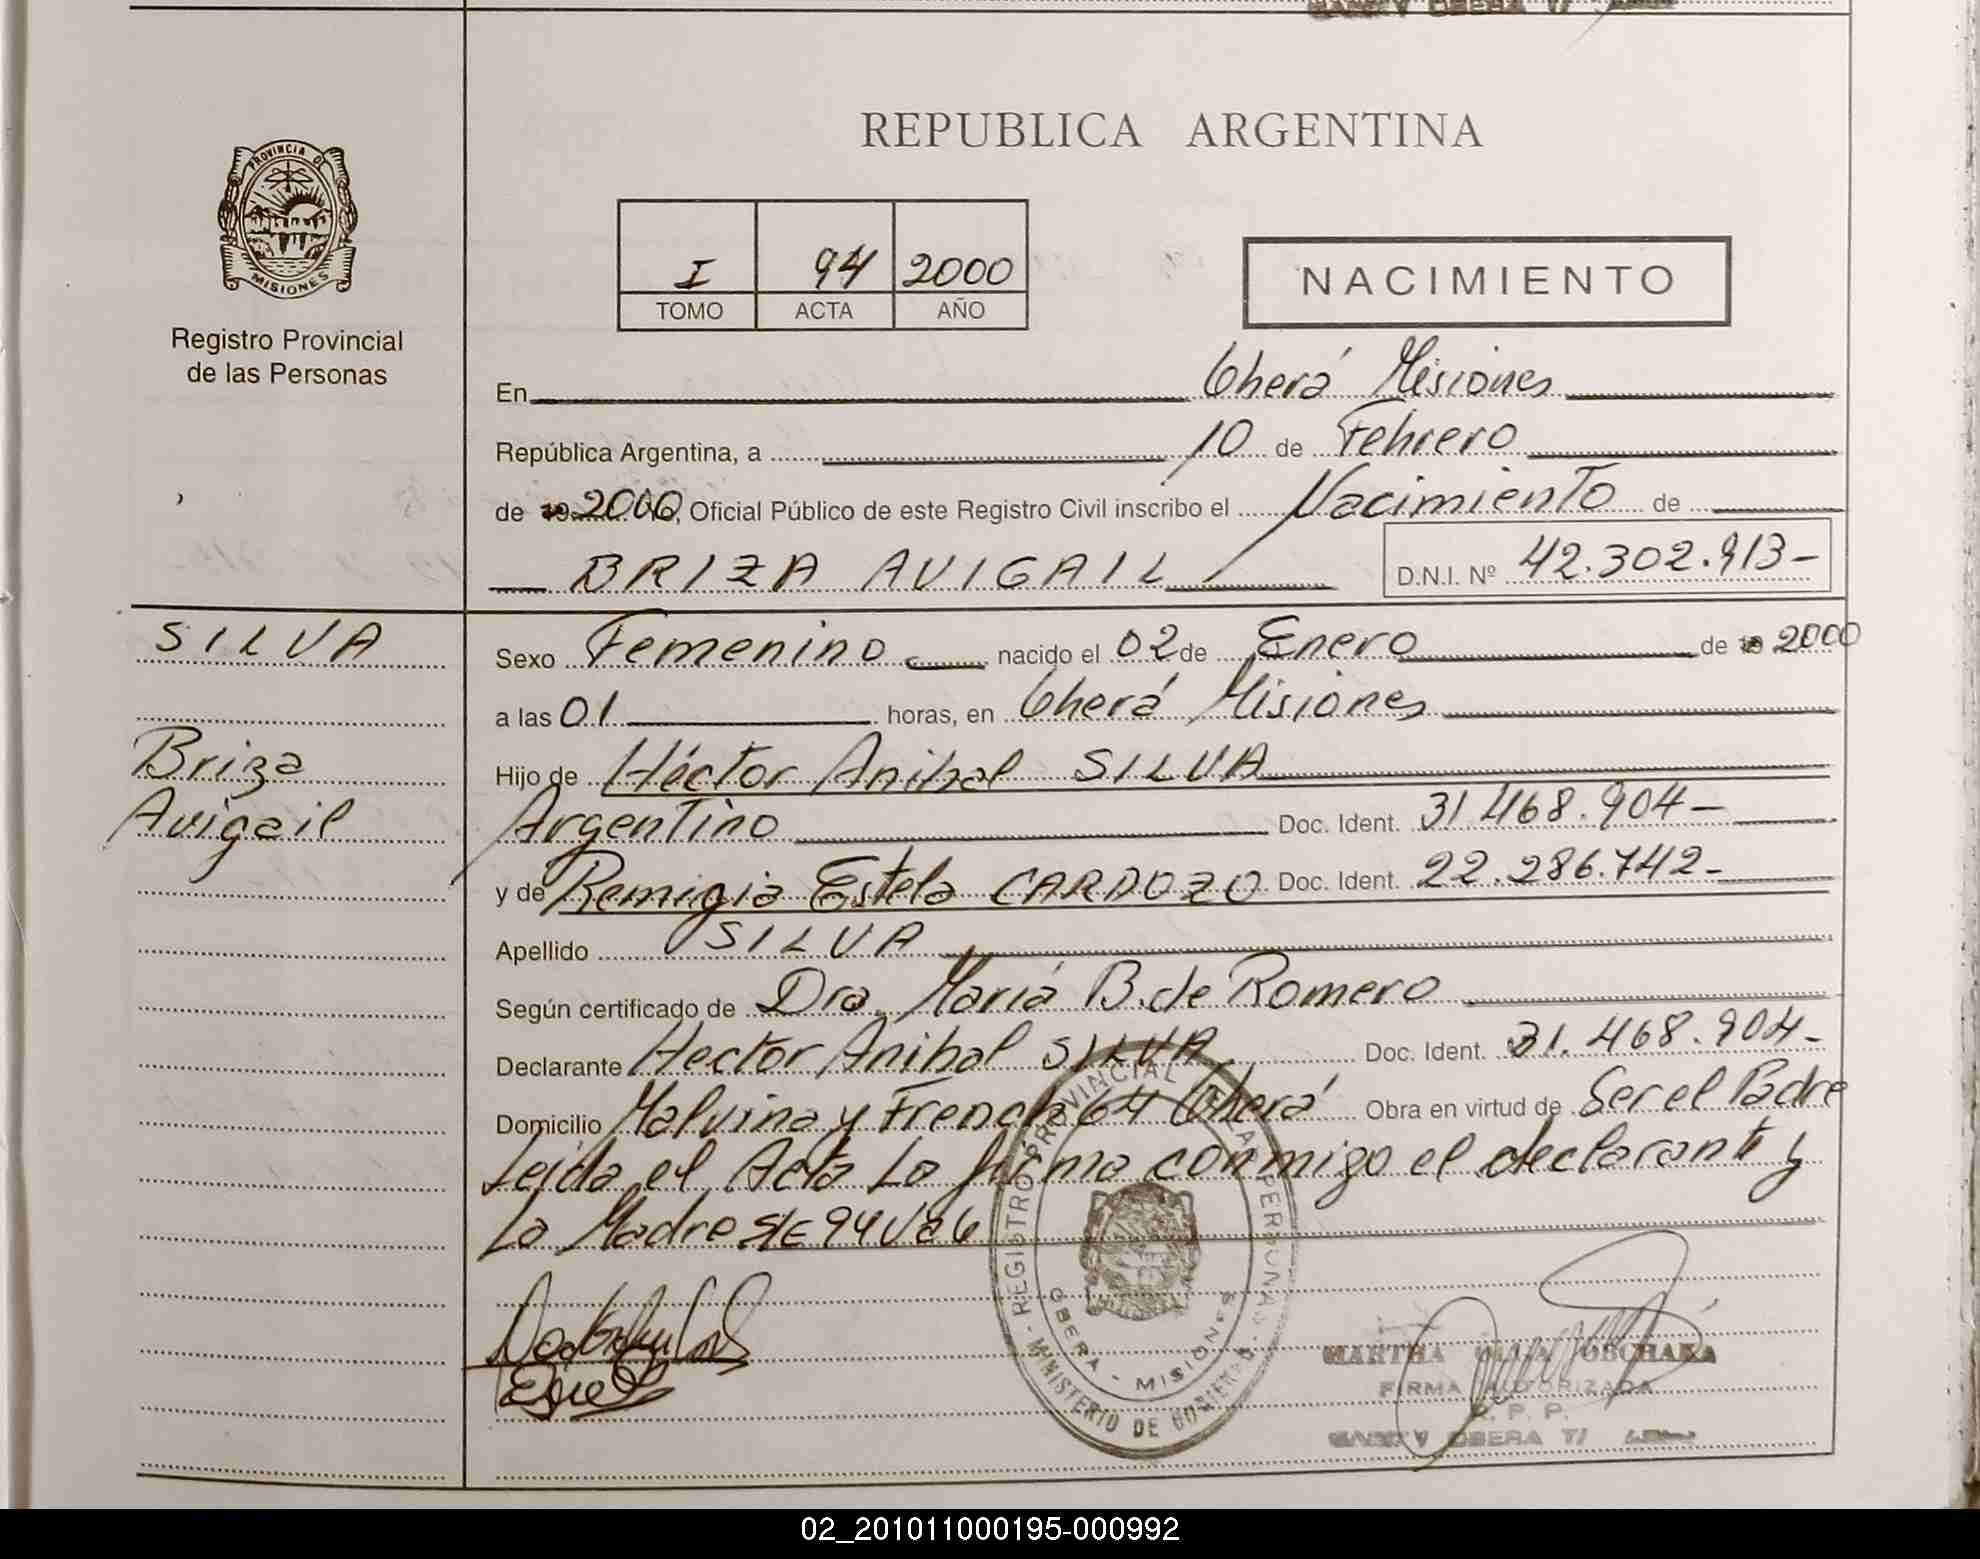 REPUBLICA ARGENTINA
PROVINCIA DE
MISIONES
Registro Provincial
de las Personas
I 94 2000
TOMO ACTA AÑO
NACIMIENTO
En Oberá Misiones
República Argentina, a 10 de Febrero
de 19 2000 Yo, Oficial Público de este Registro Civil inscribo el Nacimiento de
BRIZA AVIGAIL
D.N.I. Nº 42.302.913-
SILVA
Briza
Avigail
Sexo Femenino nacido el 02 de Enero de 19 2000
a las 01 horas, en Oberá Misiones
Hijo de Héctor Anibal SILVA
Argentino Doc. Ident. 31.468.904-
y de Remigia Estela CARDOZO Doc. Ident. 22.286.742-
Apellido SILVA
Según certificado de Dra. María B. de Romero
Declarante Hector Anibal SILVA Doc. Ident. 31.468.904-
Domicilio Malvina y French 64 Oberá Obra en virtud de Ser el Padre
Leida el Acta La firma conmigo el declarante y
La Madre S/E 94 Va
REGISTRO PROVINCIAL DE LAS PERSONAS - MINISTERIO DE GOBIERNO -
OBERA - MISIONES
MARTHA
FIRMA AUTORIZADA
R. P. P.
OBERA
02_201011000195-000992